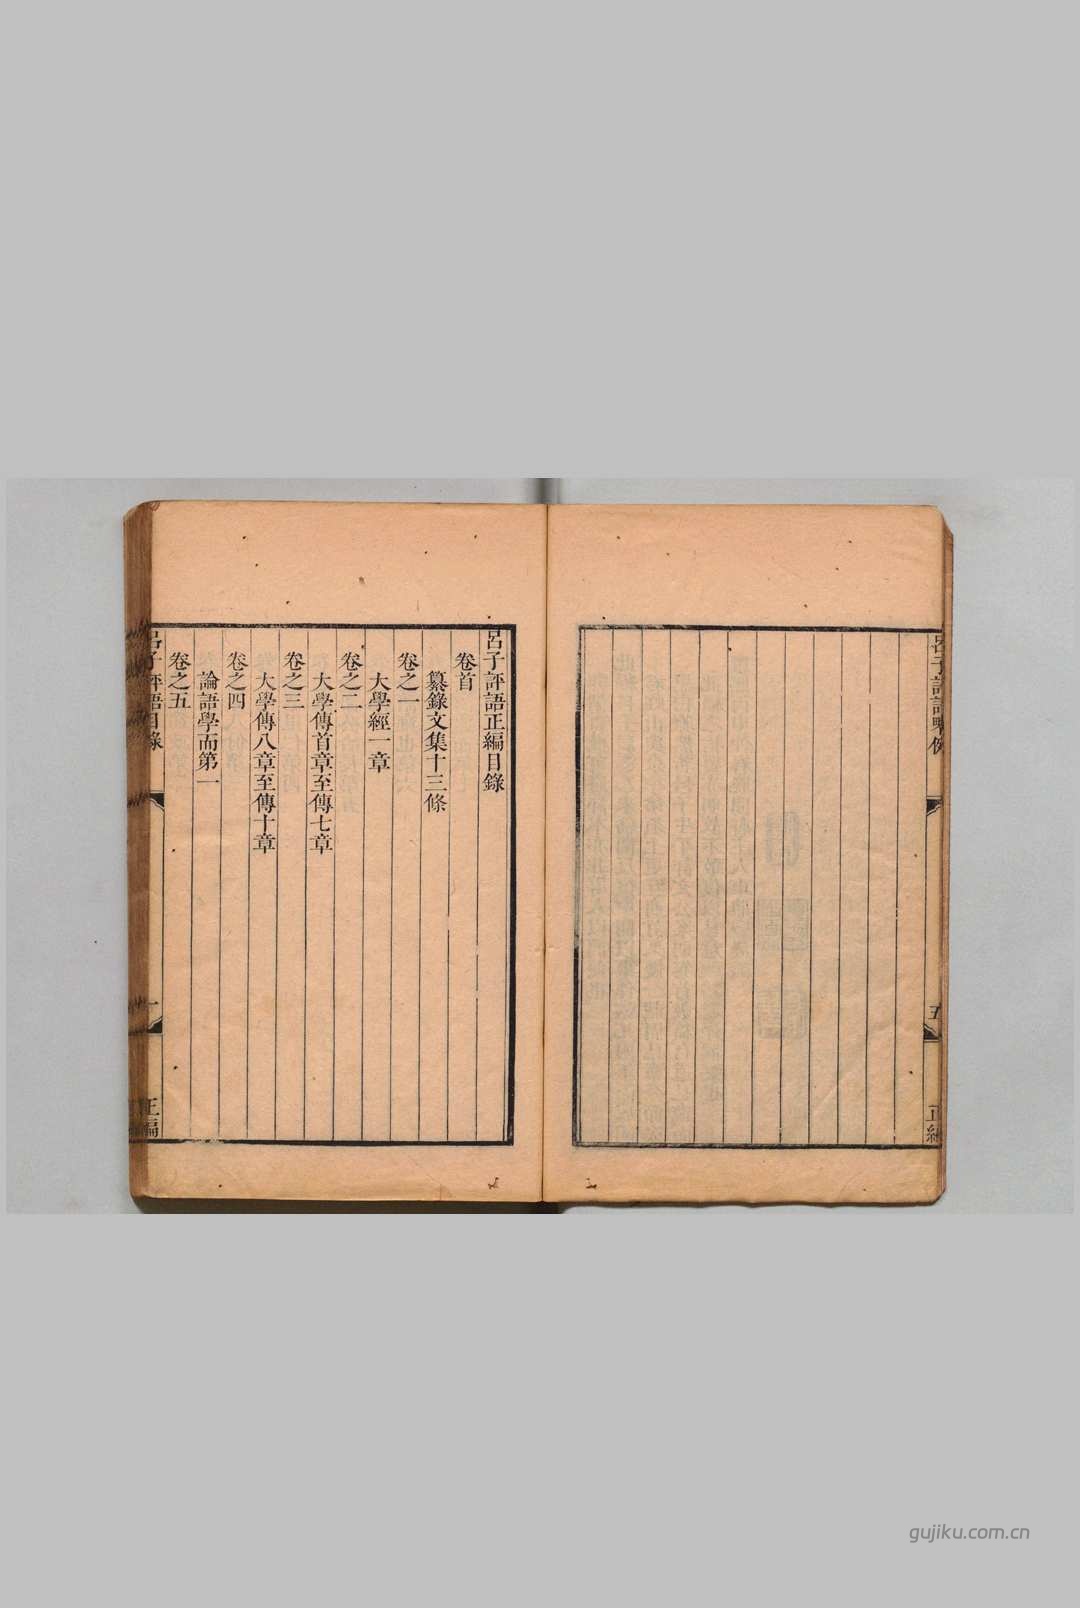 呂子評語略例
五
正編
呂子評語正編目錄
卷首
纂錄文集十三條
卷之一
大學經一章
卷之二
大學傳首章至傳七章
卷之三
大學傳八章至傳十章
卷之四
論語學而第一
卷之五
呂子評語目錄
一
正編
gujiku.com.cn